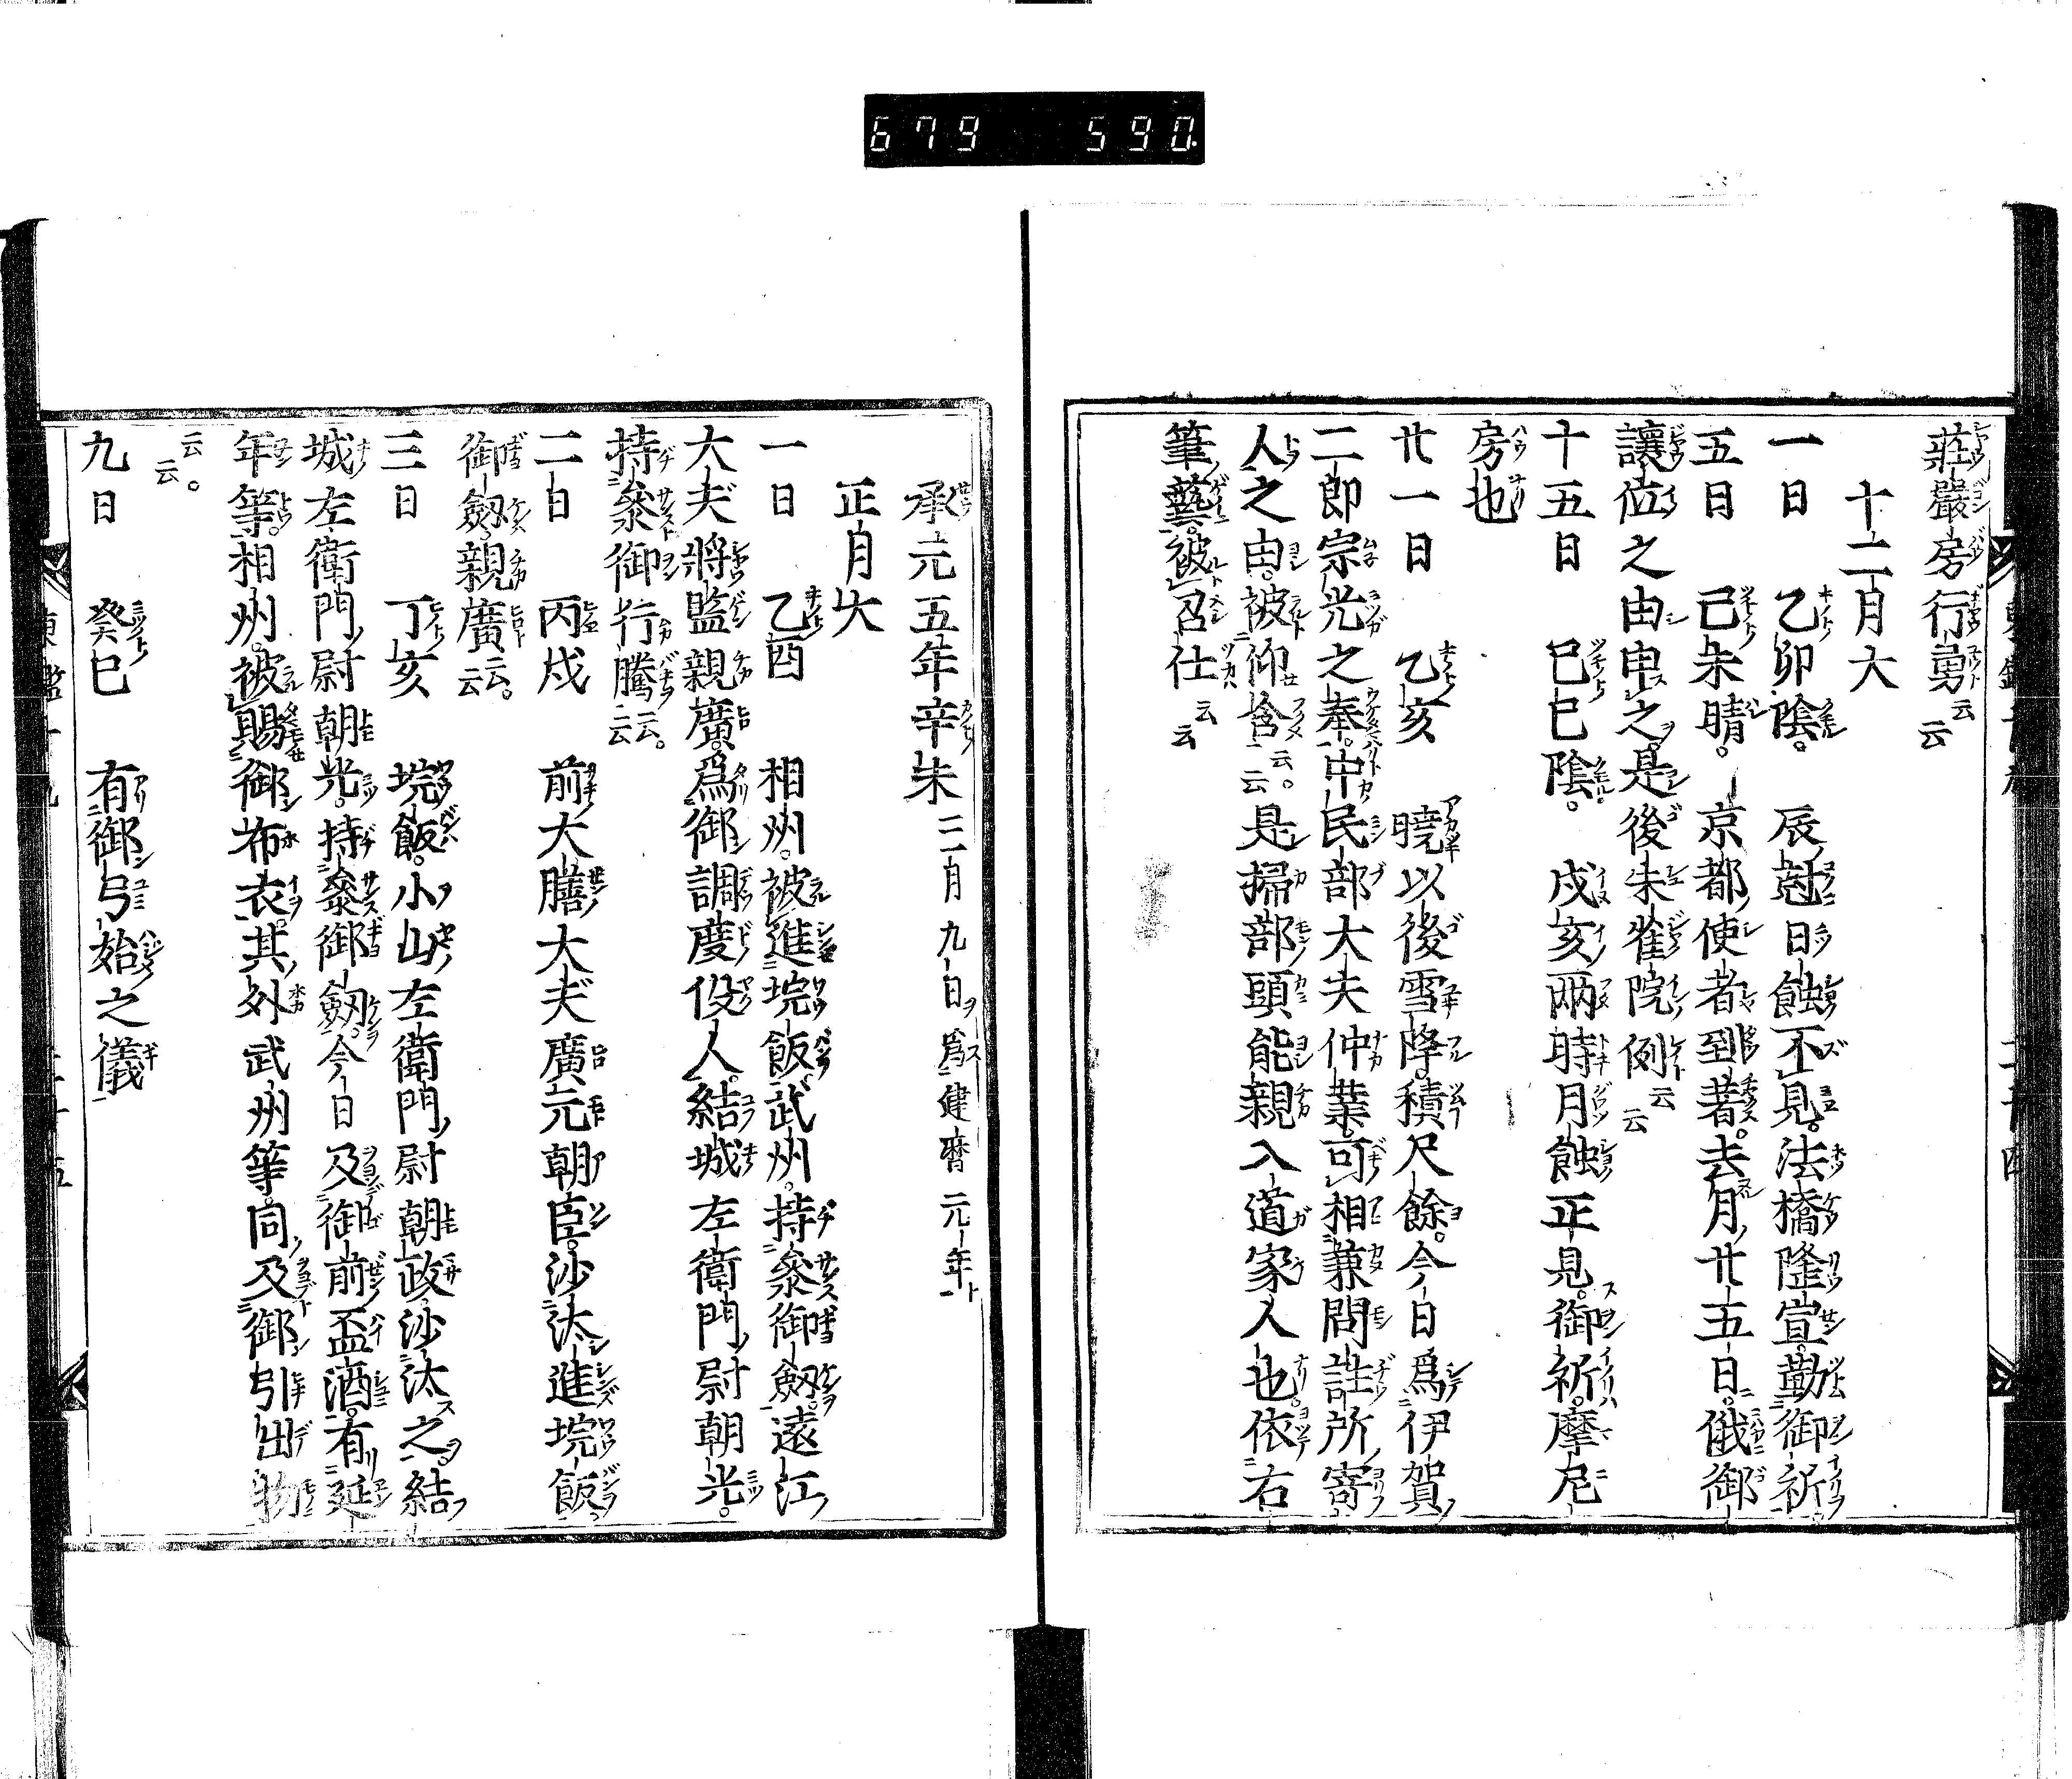 679 590
莊嚴房行勇云云
十二月大
一日 乙卯陰。 辰尅日蝕不見。法橋隆宣。勤御祈。
五日 己未晴。 京都使者到著。去月廿五日。俄御
讓位之由申之。是後朱雀院例云云
十五日 己巳陰。 戌亥兩時月蝕正見。御祈。摩尼
房也
廿一日 乙亥 曉以後雪降。積尺餘。今日爲伊賀
二郎宗光之奉。中民部大夫仲業。可相兼問註所寄
人之由。被仰含云云。是掃部頭能親入道家人也。依右
筆藝。被召仕云云
承元五年辛未三月九日爲建曆元年
正月大
一日 乙酉 相州。被進埦飯。武州。持參御劔。遠江
大夫將監親廣。爲御調度役人。結城左衞門尉朝光。
持參御行騰云云。
二日 丙戌 前大膳大夫廣元朝臣。沙汰進埦飯。
御劔。親廣云云。
三日 丁亥 埦飯。小山左衞門尉朝政沙汰之。結
城左衞門尉朝光。持參御劔。今日及御前盃酒。有延
年等。相州。被賜御布衣。其外武州等。同及御引出物
云云。
九日 癸巳 有御弓始之儀